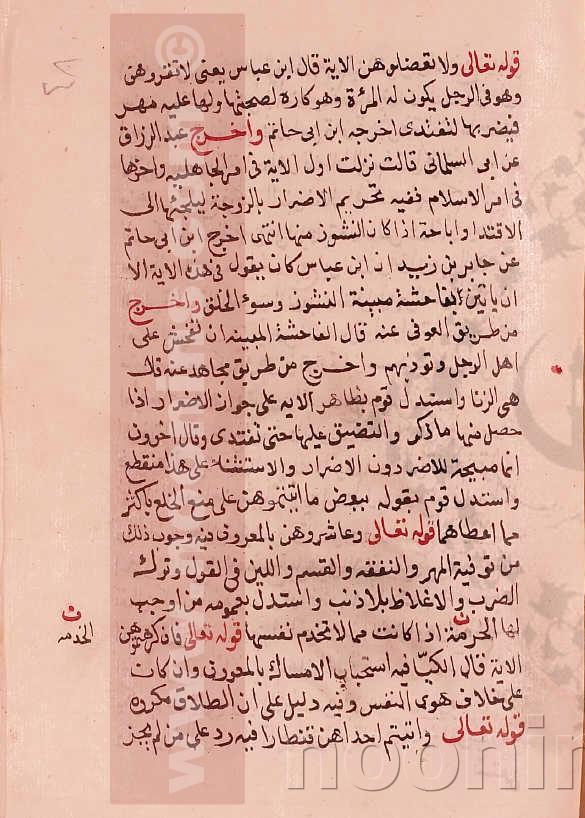 قوله تعالى ولا تعضلوهن الاية قال ابن عباس يعنى لا تقهروهن
وهو فى الرجل يكون له المرأة وهو كاره لصحبتها ولها عليه مهر
فيضربها لتفتدى اخرجه ابن ابى حاتم واخرج عبد الرزاق
عن ابى السلمانى قالت نزلت اول الاية فى امر الجاهلية واخرها
فى امر الاسلام ففيه تحريم الاضرار بالزوجة ليلجئها الى
الاقتدا واباحة اذا كان النشوز منها انتهى اخرج ابن ابى حاتم
عن جابر بن زيد ان ابن عباس كان يقول فى هذه الاية الا
ان ياتين بفاحشة مبينة النشوز وسوء الخلق واخرج
من طريق العوفى عنه قال الفاحشة المبينه ان تفحش على
اهل الرجل وتوذيهم واخرج من طريق مجاهد عنه قال
هى الزنا واستدل قوم بظاهر الايه على جواز الاضرار اذا
حصل منها ما ذكر والتضيق عليها حتى تفتدى وقال اخرون
انما مبيحة للاضر دون الاضرار والاستثناء على هذا منقطع
واستدل قوم بقوله ببعض ما اتيتموهن على منع الخلع باكثر
مما اعطاهما قوله تعالى وعاشروهن بالمعروف فيه وجوب ذلك
من توفية المهر والنفقه والقسم واللين فى القول وترك
الضرب والاغلاظ بلا ذنب واستدل بعمومه من اوجب
لها الحرمة اذا كانت ممالا تخدم نفسها قوله تعالى فان كرهتموهن
ن
الخدمه
الاية قال الكيا فيه استحباب الامساك بالمعروف وان كان
على خلاف هوى النفس وفيه دليل على ان الطلاق مكروه
قوله تعالى واتيتم احداهن قنطارا فيه رد على من لم يجز
noorin